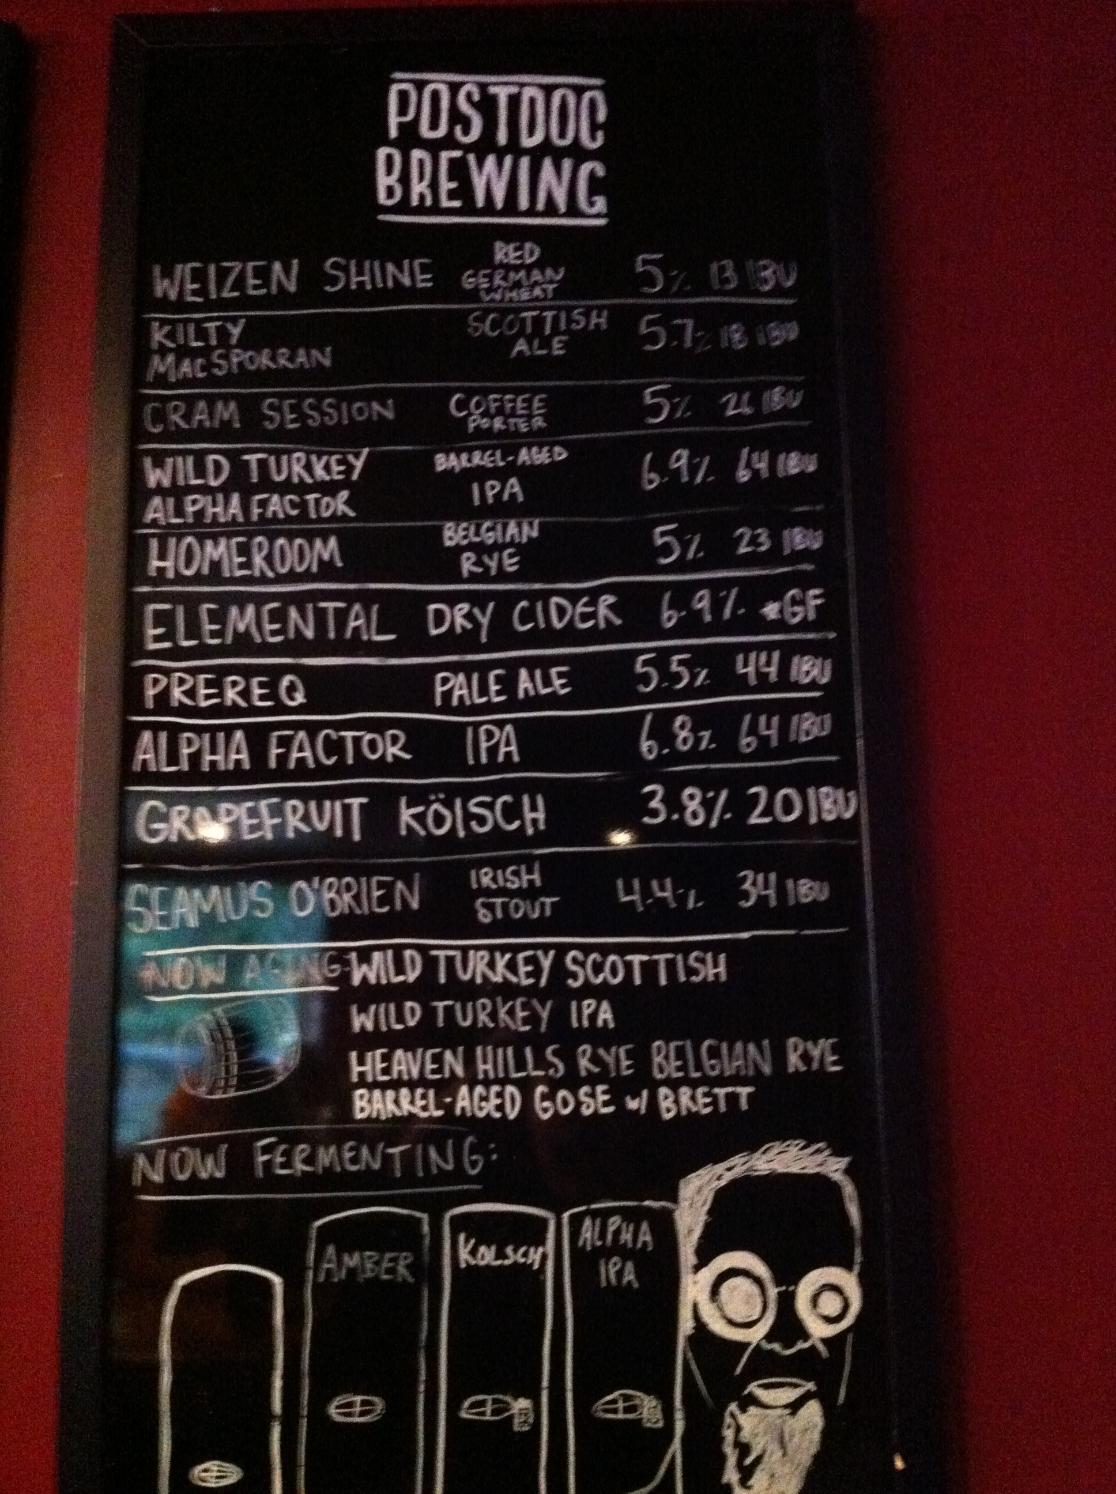 POSTDOC
BREWING
WEIZEN SHINE RED GERMAN WHEAT 5% 13 IBU
KILTY MACSPORRAN SCOTTISH ALE 5.7% 18 IBU
CRAM SESSION COFFEE PORTER 5% 26 IBU
WILD TURKEY ALPHA FACTOR BARREL-AGED IPA 6.9% 64 IBU
HOMEROOM BELGIAN RYE 5% 23 IBU
ELEMENTAL DRY CIDER 6.9% *GF
PREREQ PALE ALE 5.5% 44 IBU
ALPHA FACTOR IPA 6.8% 64 IBU
GRAPEFRUIT KÖLSCH 3.8% 20 IBU
SEAMUS O'BRIEN IRISH STOUT 4.4% 34 IBU
NOW AGING: WILD TURKEY SCOTTISH
WILD TURKEY IPA
HEAVEN HILLS RYE BELGIAN RYE
BARREL-AGED GOSE w/ BRETT
NOW FERMENTING:
AMBER
KOLSCH
ALPHA
IPA